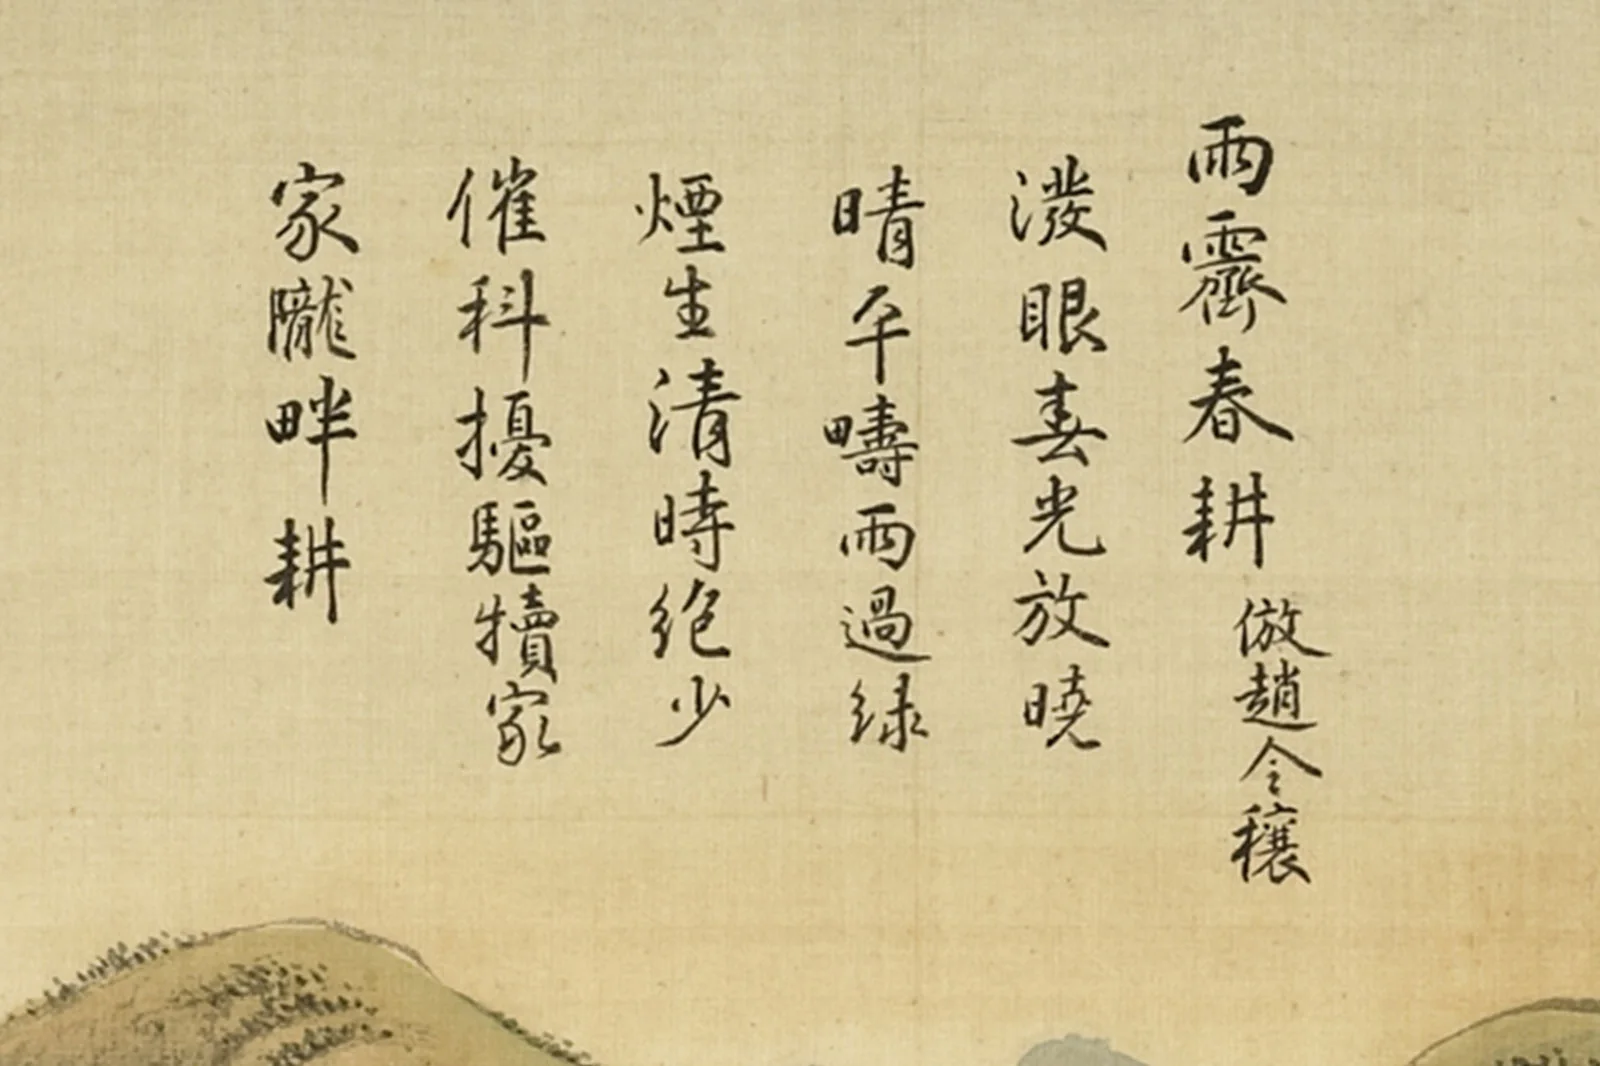 雨霽春耕 倣趙令穰
潑眼春光放曉
晴平疇雨過綠
煙生清時絶少
催科擾驅犢家
家隴畔耕